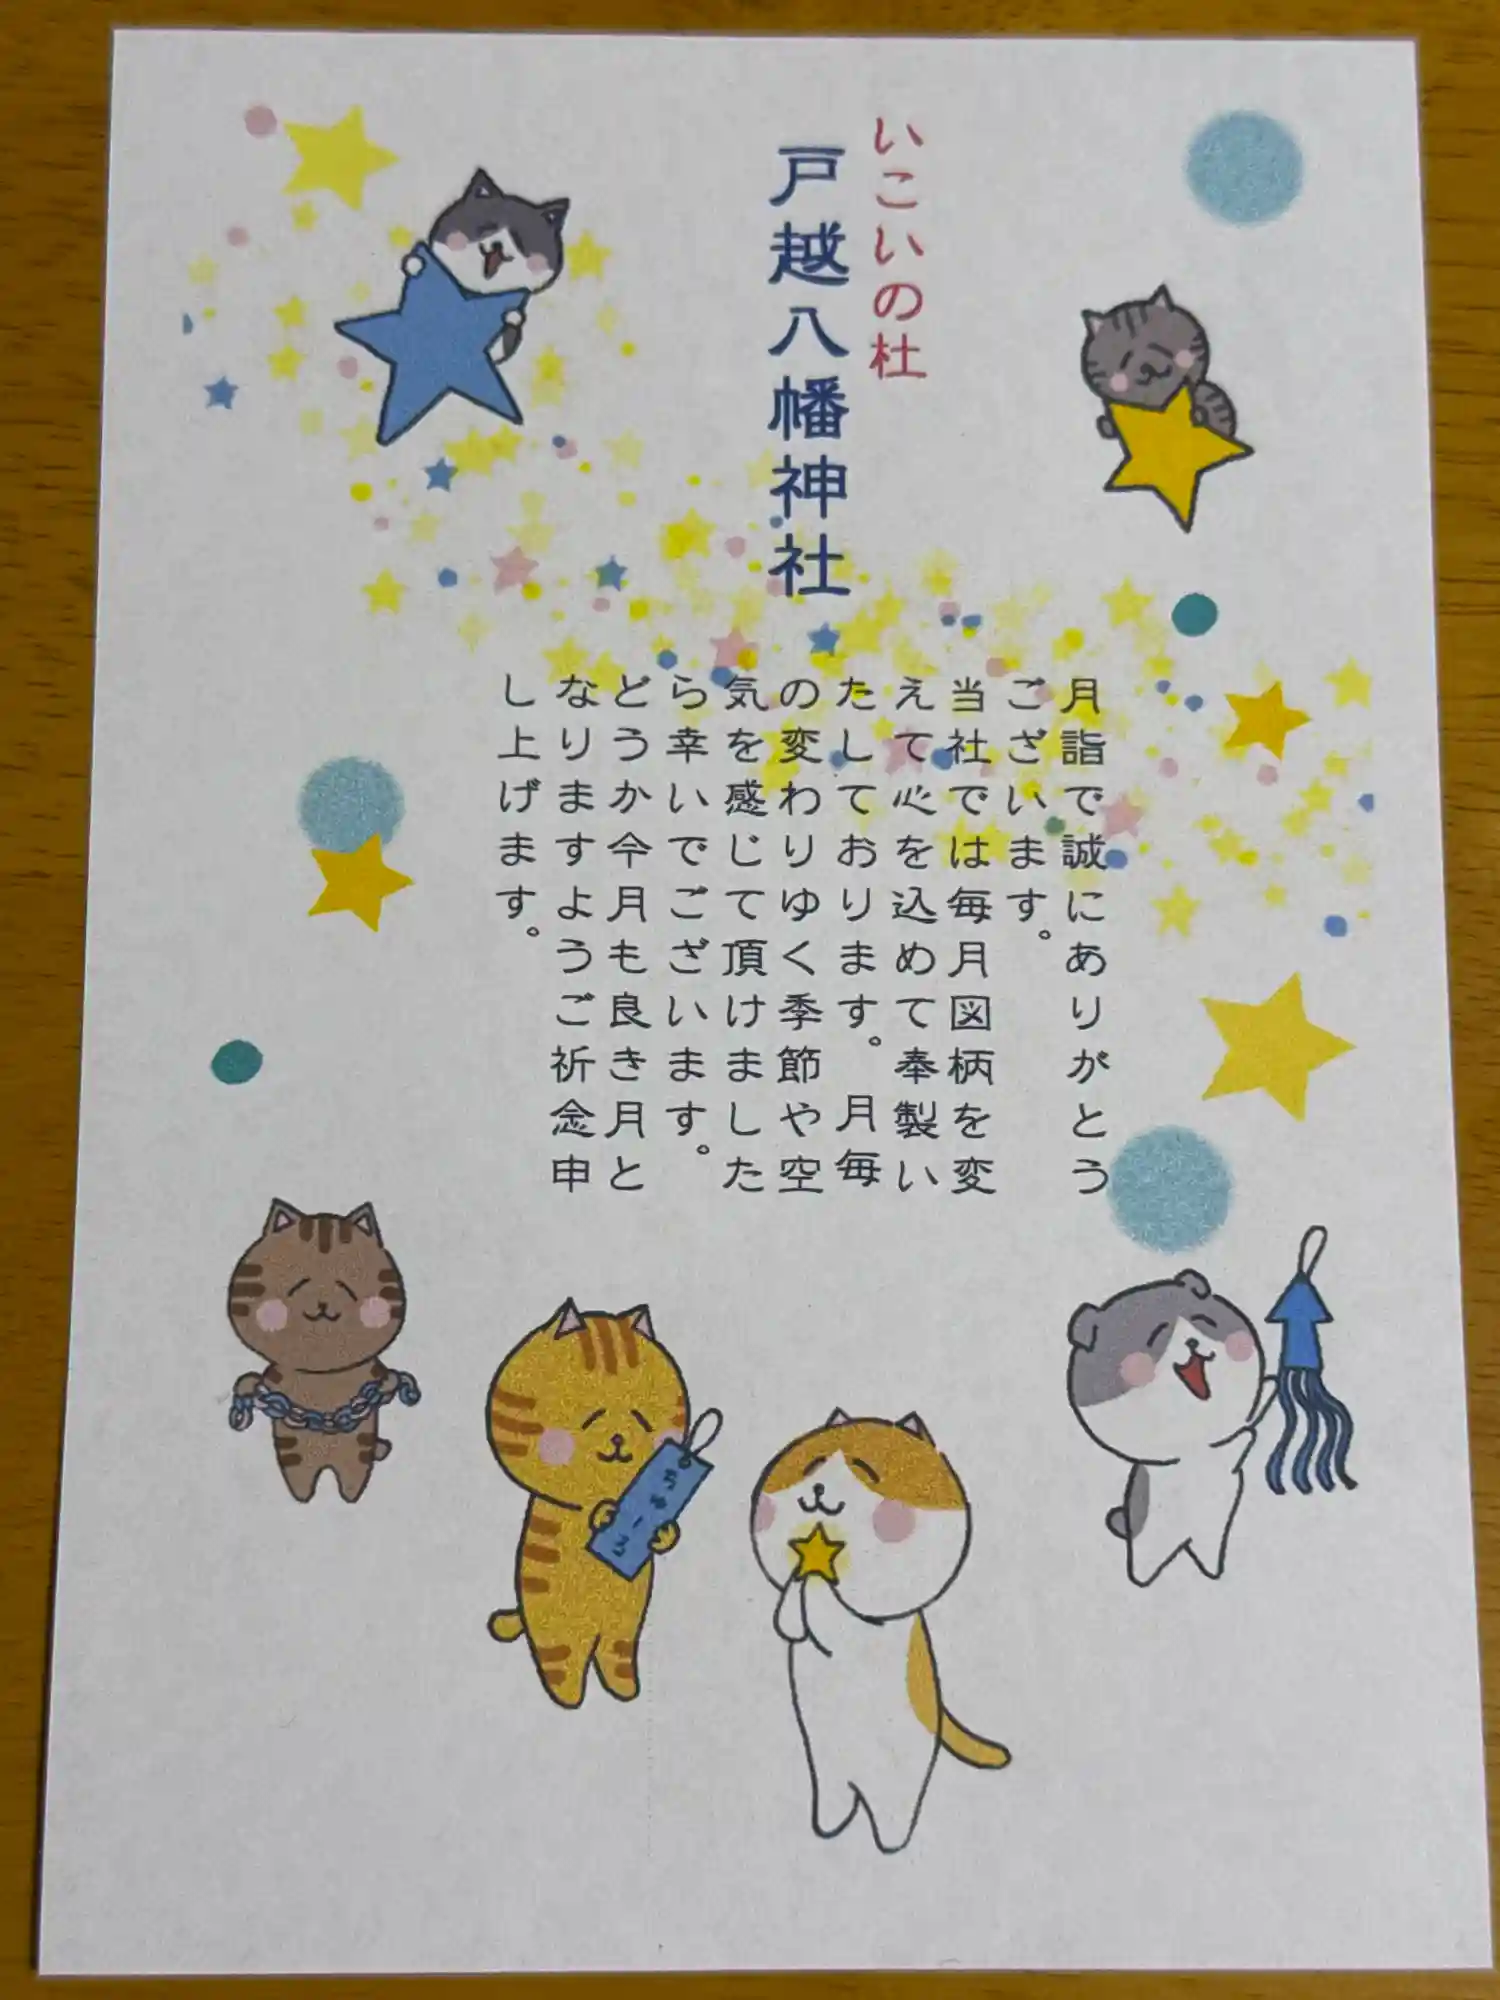 いこいの杜
戸越八幡神社
月詣で誠にありがとう
ございます。
当社では毎月図柄を変
えて心を込めて奉製い
たしております。 月毎
の変わりゆく季節や空
気を感じて頂けました
ら幸いでございます。
どうか今月も良き月と
なりますようご祈念申
し上げます。
ちゅ～る